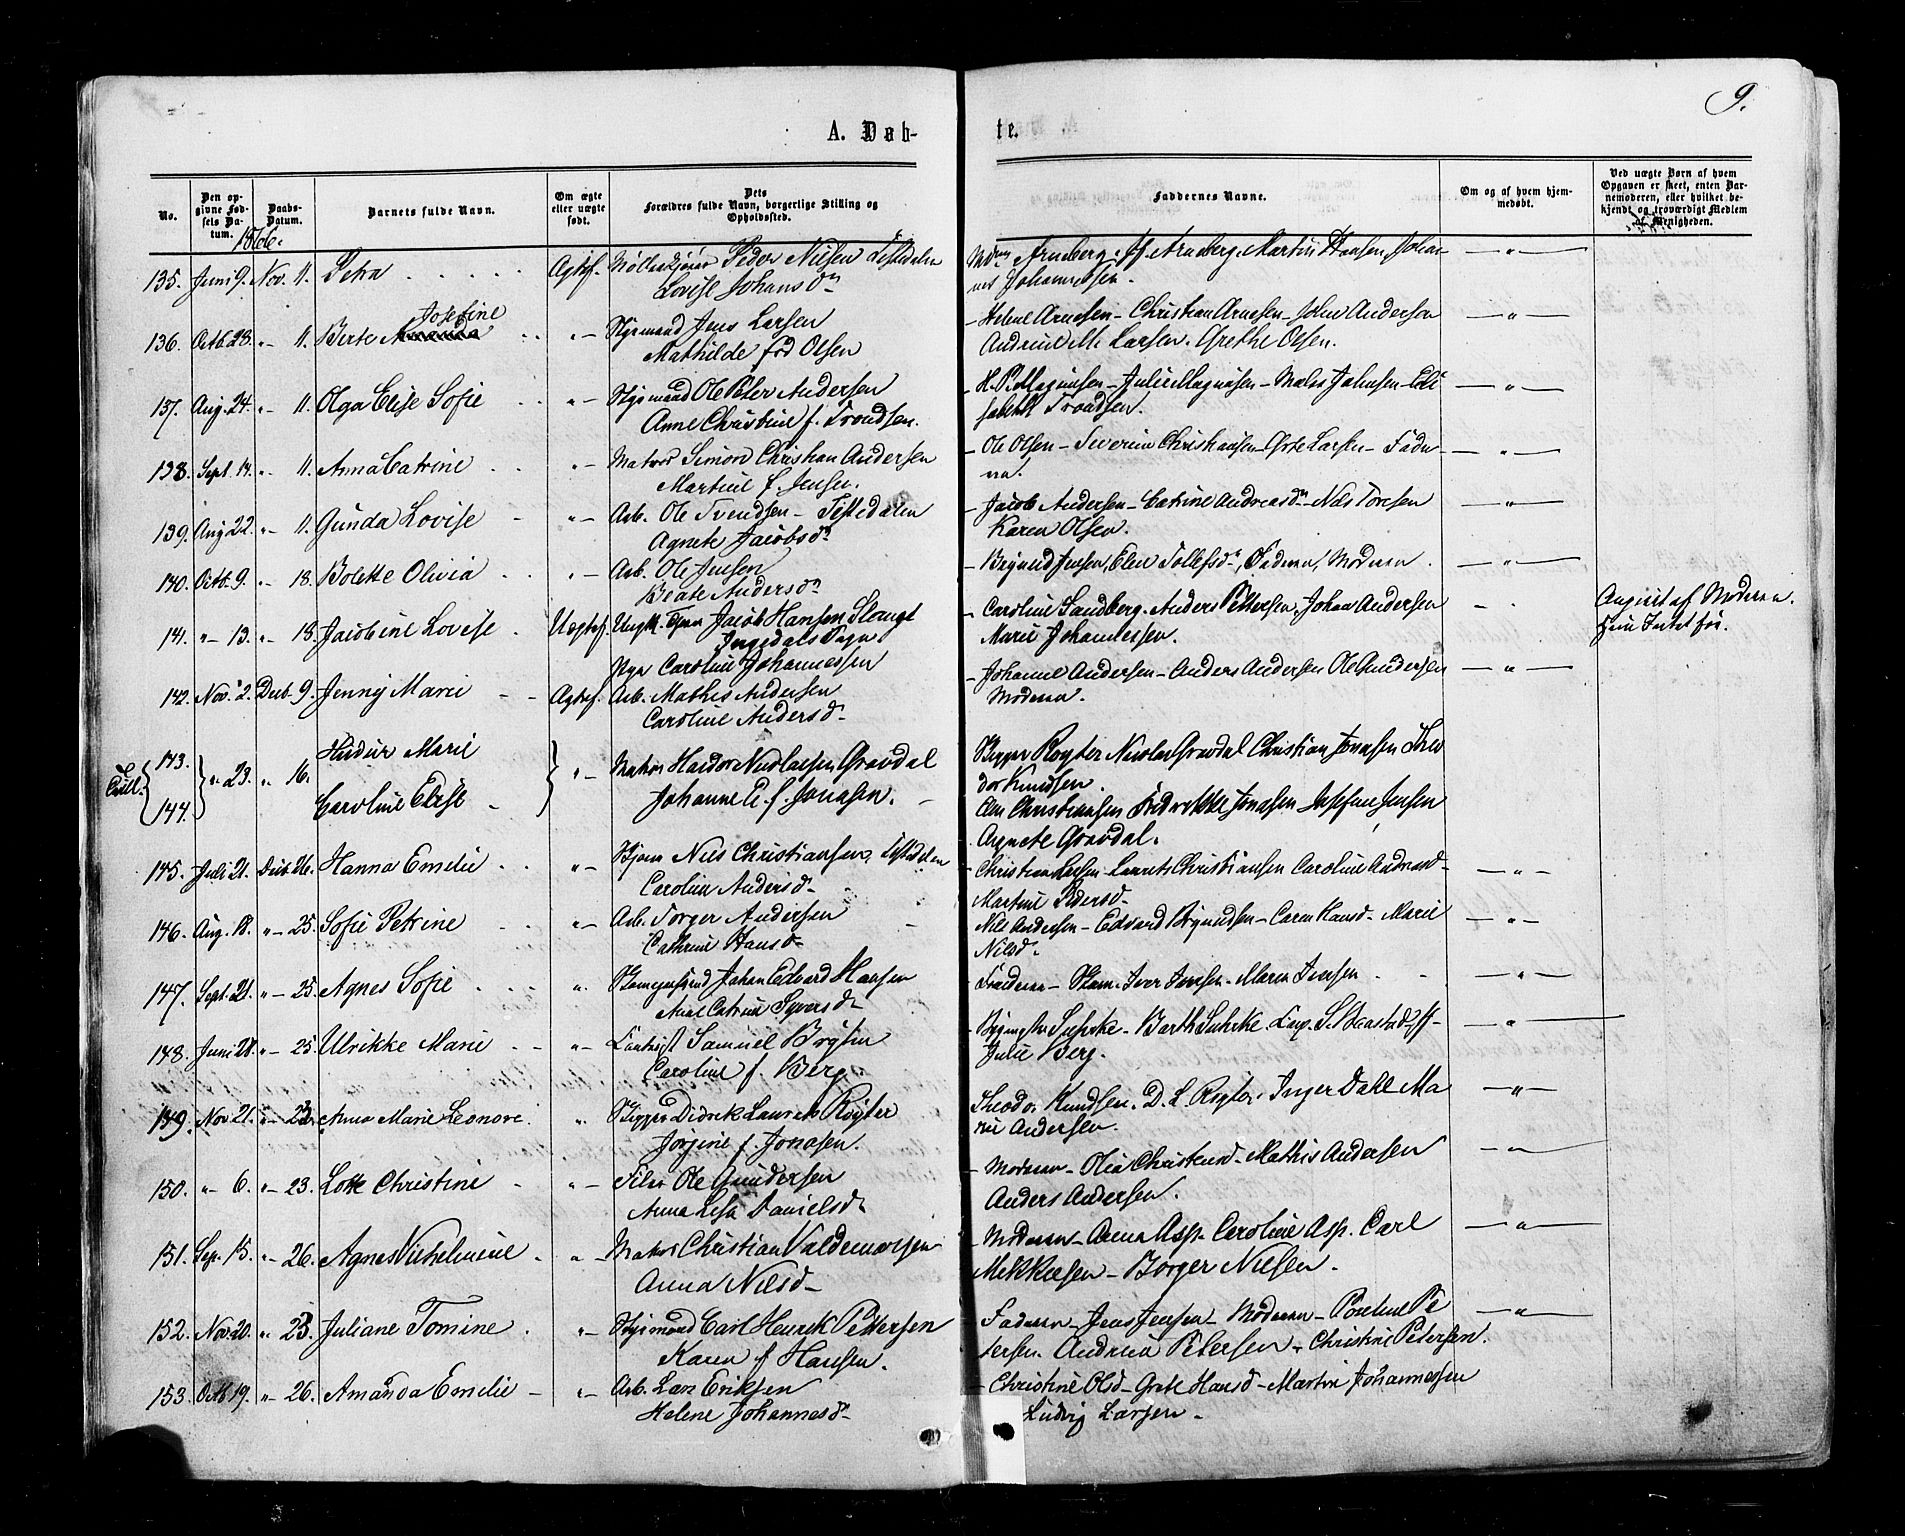 9.
A. Døb-
te.
No.
Den opgivne Fødsels Datum.
Daabs-Datum.
Barnets fulde Navn.
Om ægte eller uægte født.
Dets Forældres fulde Navn, borgerlige Stilling og Opholdssted.
Faddernes Navne.
Om og af hvem hjemmedøbt.
Ved uægte Børn af hvem Opgaven er skeet, enten Barnemoderen, eller hvilket bekjendt og troværdigt Medlem af Menigheden.
1866.
135. Juni 9. Nov. 11. Petra Ægtef. Peder Nilsen Tistedalen Arneberg. Arneberg. Martin Hansen, Johan-
Lovise Johansdn nes Johannessen.
Josefine
136. Octb. 28. " 11. Berte Amanda " Jens Larsen Helene Arnesen - Christian Arnesen - John Andersen
Mathilde fød Olsen Andrine M. Larsen. Grethe Olsen.
137. Aug. 24. " 11. Olga Elise Sofie " Ole Peter Andersen H. P. Magnusen - Julie Magnusen - Johnsen - Eli
Anne Christine f. Trondsen. sabeth Trondsen.
138. Sept. 14. " 11. Anna Catrine " Matros Simon Christian Andersen Ole Olsen - Severin Christiansen - Larsen - Fade-
Martine f. Jensen. ren.
139. Aug. 22. " 11. Gunda Lovise " Arb. Ole Svendsen - Tistedalen Jacob Andersen - Catrine Andreasdn - Nils Toresen
Agnete Jacobsdn Karen Olsen.
140. Octb. 9. " 18. Bolette Olivia " Arb. Ole Jensen Brynild Jensen, Elen Tollefsdn, Faderen, Moderen.
Beate Andersdn
141. " 13. " 18. Jacobine Lovise Uægtef. Ungk. Jacob Hansen Caroline Sandberg. Anders Pettersen, Johan Andersen Angivet af Moderen.
Ingedals Sogn Marie Johannessen.
Pige Caroline Johannessen
142. Nov. 2. Decb. 9. Jenny Marie Ægtef. Arb. Mathis Andersen Johanne Andersen - Anders Andersen Ole Andersen
Caroline Andersd. Moderen.
Tvill.
143. " 23. " 16. Marie " Matros Gravdal Skipper Røyter Nicolai Gravdal Christian Jonasen Theo
dor Knudsen.
144. Caroline Elise Johanne E. f. Jonasen. Christiansen Fredrikke Jonasen Josefine Jensen
Agnete Gravdal.
145. Juli 21. Decb. 26. Hanna Emilie " Nils Christiansen, Tistedalen Christian Larsen - Laurits Christiansen Caroline Andreasd.
Caroline Andersd. Martine Pedersd.
146. Aug. 18. " 25. Sofie Petrine " Arb. Torger Andersen Nils Andersen - Edvard Brynildsen - Caren Hansd. Marie
Cathrine Hansd. Nilsd.
147. Sept. 21. " 25. Agnes Sofie " Johan Edvard Hansen Faderen - Iver Iversen - Maren Iversen
Catrine Syversd.
148. Juni 28. " 25. Ulrikke Marie " Samuel Suhrke - Barth Suhrke.
Caroline f. Berg Julie Berg.
149. Nov. 21. " 23. Anna Marie Leonore " Skipper Didrik Laurits Røyter Theodor Knudsen. D. L. Røyter. Inger Dahl Ma
Jørgine f. Jonasen. rie Andersen.
150. " 6. " 23. Lotte Christine " Ole Gundersen Moderen - Olia Christensd - Mathis Andersen
Anna Lisa Danielsd. Anders Andersen.
151. Sep. 15. " 26. Agnes Vilhelmine " Matros Christian Valdemarsen Moderen - Anna Asp - Caroline Asp. Carl
Anna Nilsd. Mikkelsen - Borger Nilsen.
152. Nov. 20. " 23. Juliane Tomine " Carl Henrik Pettersen Faderen - Jens Jensen - Moderen - Pe
Karen f. Hansen. tersen. Andrea Petersen - Christine Petersen.
153. Octb. 19. " 26. Amanda Emilie " Arb. Lars Eriksen Christine Olsd - Grete Hansd - Martin Johannessen
Helene Johannesd. Ludvig Larsen.